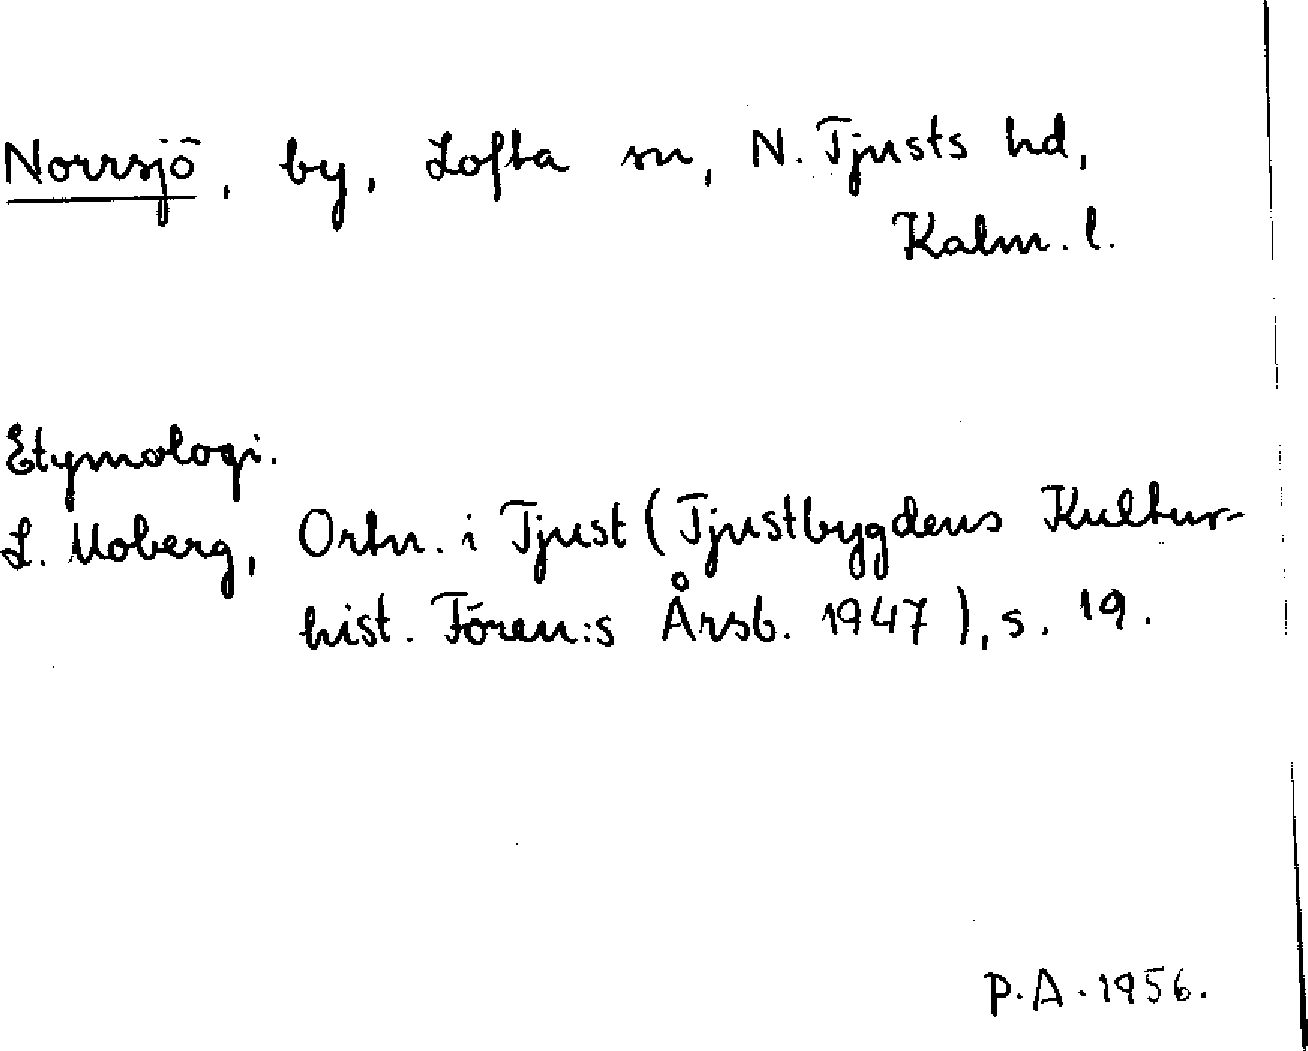 Norrsjö, by, Lofta sn, N. Tjusts hd,
Kalm. l.
Etymologi.
L. Moberg, Ortn. i Tjust (Tjustbygdens Kultur-
hist. Fören:s Årsb. 1947), s. 19.
P.A. 1956.